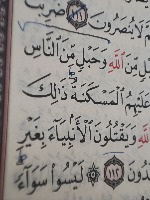 لَا يُنصَرُونَ ١١١ ضُرِبَتْ
مِّنَ ٱللَّهِ وَحَبْلٍ مِّنَ ٱلنَّاسِ
عَلَيْهِمُ ٱلْمَسْكَنَةُ ذَٰلِكَ
ٱللَّهِ وَيَقْتُلُونَ ٱلْأَنۢبِيَآءَ بِغَيْرِ
دُونَ ١١٢ لَيْسُوا۟ سَوَآءً